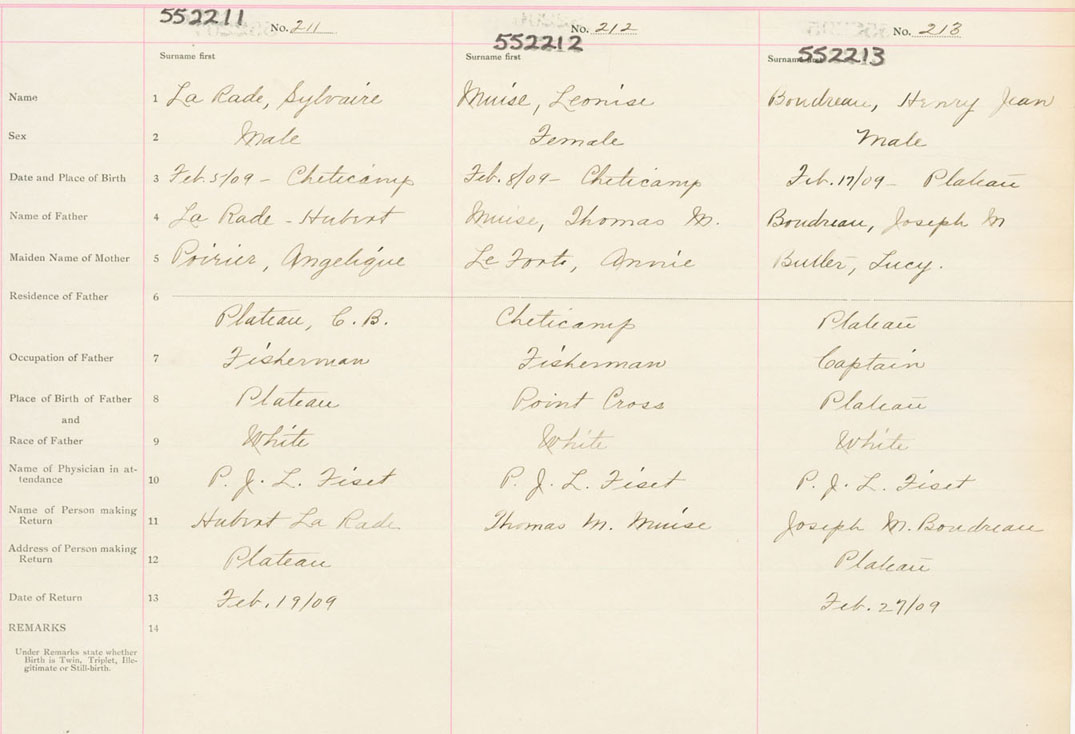 552211 No. 211 No. 212 No. 213
552212 552213
Surname first Surname first Surname first
Name 1 La Rade, Sylvaire Muise, Leonise Boudreau, Henry Jean
Sex 2 Male Female Male
Date and Place of Birth 3 Feb. 5/09 - Cheticamp Feb. 8/09 - Cheticamp Feb. 17/09 - Plateau
Name of Father 4 La Rade - Hubert Muise, Thomas M. Boudreau, Joseph M
Maiden Name of Mother 5 Poirier, Angelique Le Forte, Annie Butler, Lucy.
Residence of Father 6
Plateau, C.B. Cheticamp Plateau
Occupation of Father 7 Fisherman Fisherman Captain
Place of Birth of Father 8 Plateau Point Cross Plateau
and
Race of Father 9 White White White
Name of Physician in at-
tendance 10 P. J. L. Fiset P. J. L. Fiset P. J. L. Fiset
Name of Person making
Return 11 Hubert La Rade Thomas M. Muise Joseph M. Boudreau
Address of Person making
Return 12 Plateau Plateau
Date of Return 13 Feb. 19/09 Feb. 27/09
REMARKS 14
Under Remarks state whether
Birth is Twin, Triplet, Ille-
gitimate or Still-birth.